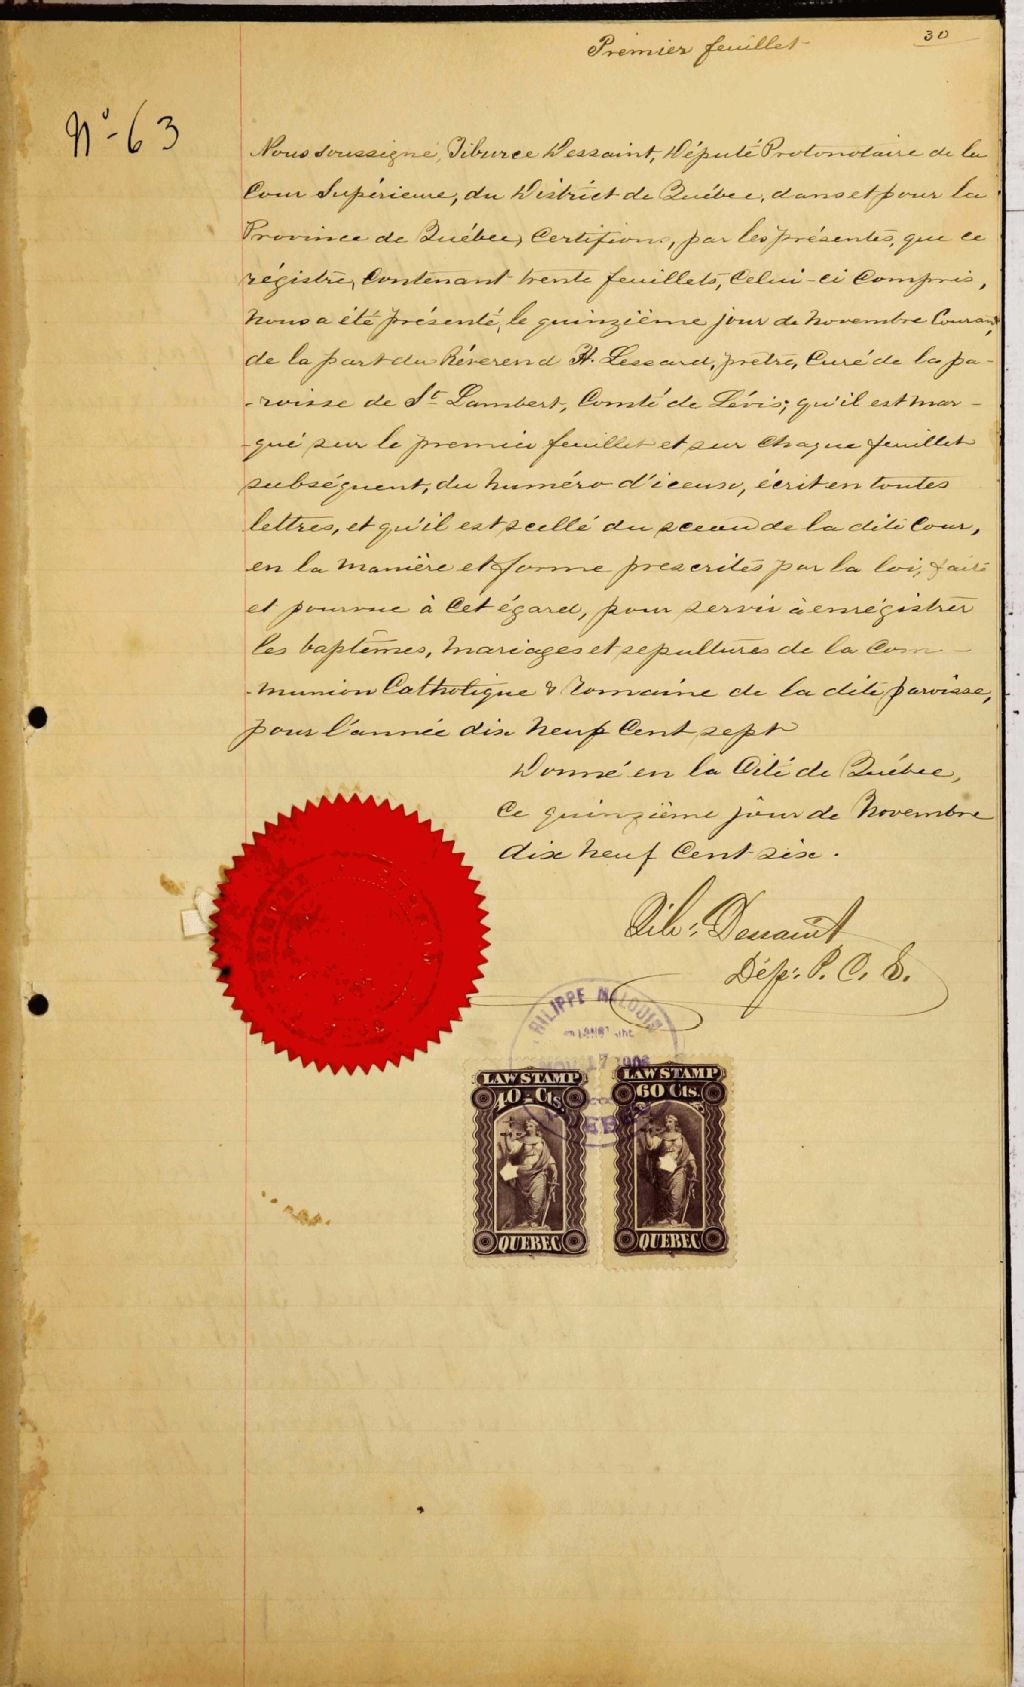 Premier feuillet
30
No-63
Nous soussigné, Tiburce Dessaint, Député Protonotaire de la
Cour Supérieure, du District de Québec, dans et pour la
Province de Québec, Certifions, par les présentes, que ce
régistre, Contenant trente feuillets, Celui-ci Compris,
nous a été présenté, le quinzième jour de Novembre Courant,
de la part du Réverend H. Lessard, prêtre, Curé de la pa-
-roisse de St Lambert, Comté de Lévis; qu'il est mar-
-qué sur le premier feuillet et sur Chaque feuillet
subséquent, du numéro d'iceux, écrit en toutes
lettres, et qu'il est scellé du sceau de la dite Cour,
en la manière et forme prescrites par la loi, faite
et pourvue à cet égard, pour servir à enrégistrer
les baptêmes, mariages et sepultures de la Com-
-munion Catholique & Romaine de la dite paroisse,
pour l'année dix neuf Cent sept
Donné en la Cité de Québec,
Ce quinzième jour de Novembre
dix neuf Cent six.
Tib: Dessaint
Dép: P. C. S.
NOV 17 1906
LAW STAMP
40 Cts.
QUEBEC
LAW STAMP
60 Cts.
QUEBEC